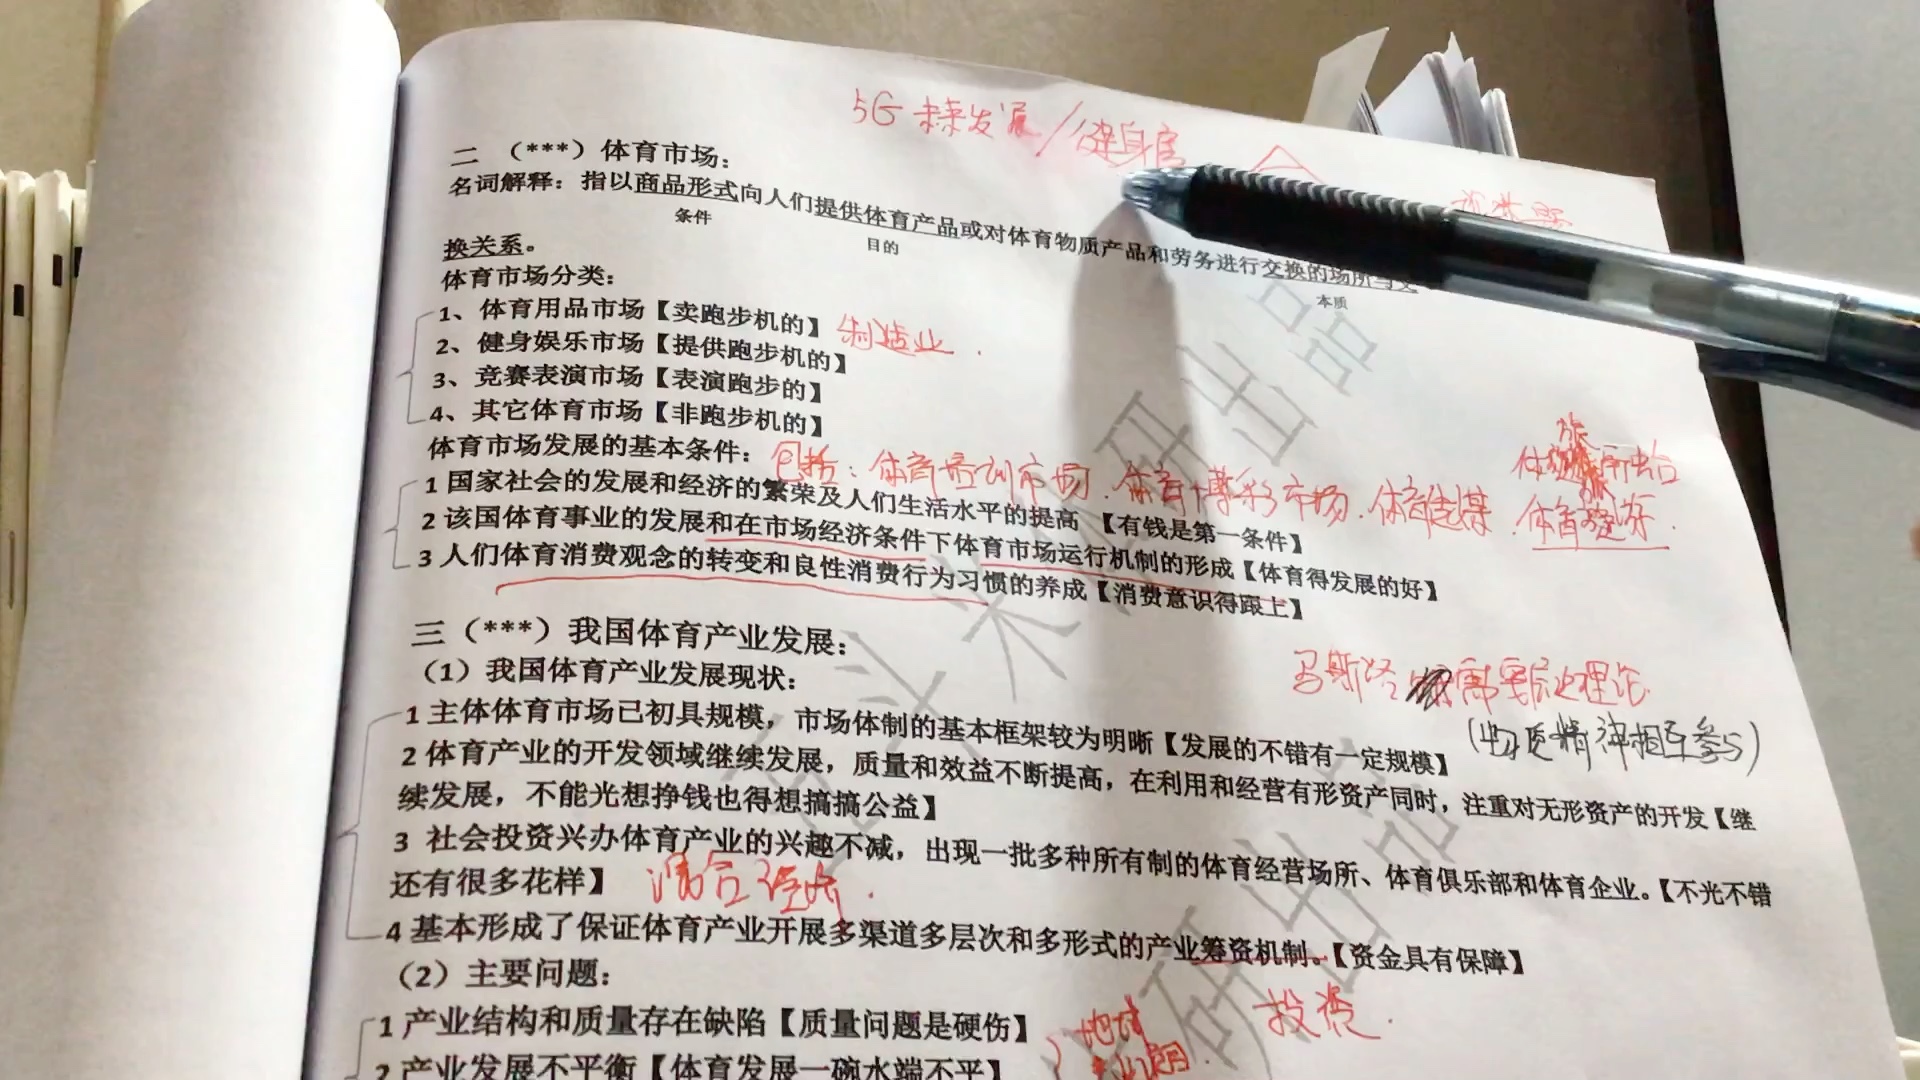 5G 未来发展/健身房
二 （***）体育市场：
名词解释：指以商品形式向人们提供体育产品或对体育物质产品和劳务进行交换的场所与交
条件
目的
本质
换关系。
体育市场分类：
1、体育用品市场【卖跑步机的】 制造业.
2、健身娱乐市场【提供跑步机的】
3、竞赛表演市场【表演跑步的】
4、其它体育市场【非跑步机的】
体育市场发展的基本条件：
包括：体育培训市场.体育博彩市场.体育传媒
1 国家社会的发展和经济的繁荣及人们生活水平的提高 【有钱是第一条件】
2 该国体育事业的发展和在市场经济条件下体育市场运行机制的形成【体育得发展的好】
3 人们体育消费观念的转变和良性消费行为习惯的养成【消费意识得跟上】
三（***）我国体育产业发展：
（1）我国体育产业发展现状：
马斯洛需要层次理论
1 主体体育市场已初具规模，市场体制的基本框架较为明晰【发展的不错有一定规模】
（物质精神相互参与）
2 体育产业的开发领域继续发展，质量和效益不断提高，在利用和经营有形资产同时，注重对无形资产的开发【继
续发展，不能光想挣钱也得想搞搞公益】
3 社会投资兴办体育产业的兴趣不减，出现一批多种所有制的体育经营场所、体育俱乐部和体育企业。【不光不错
还有很多花样】 混合经济.
4 基本形成了保证体育产业开展多渠道多层次和多形式的产业筹资机制。【资金具有保障】
（2）主要问题：
投资.
1 产业结构和质量存在缺陷【质量问题是硬伤】
地域
2 产业发展不平衡【体育发展一碗水端不平】